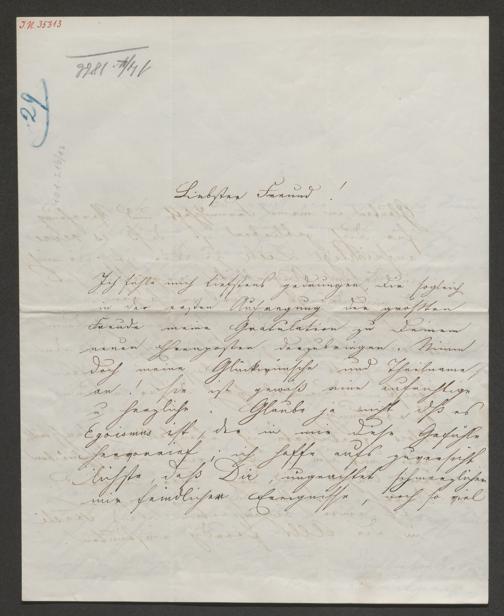 I.N. 35313
29
Liebster Freund!
Ich fühle mich tiefstens gedrungen, Dir sogleich
in der ersten Aufregung der größten
Freude meine Gratulation zu Deinem
neuen Ehrenposten darzubringen. Nimm
doch meine Glückwünsche und Theilname
an! Sie ist gewiß eine aufrichtige
u herzliche. Glaube ja nicht daß es
Egoismus ist, der in mir diese Gefühle
hervorrief, ich hoffe aufs zuversicht
lichste, daß Du, ungeachtet schmerzlicher
mir feindlicher Ereignisse, noch so viel